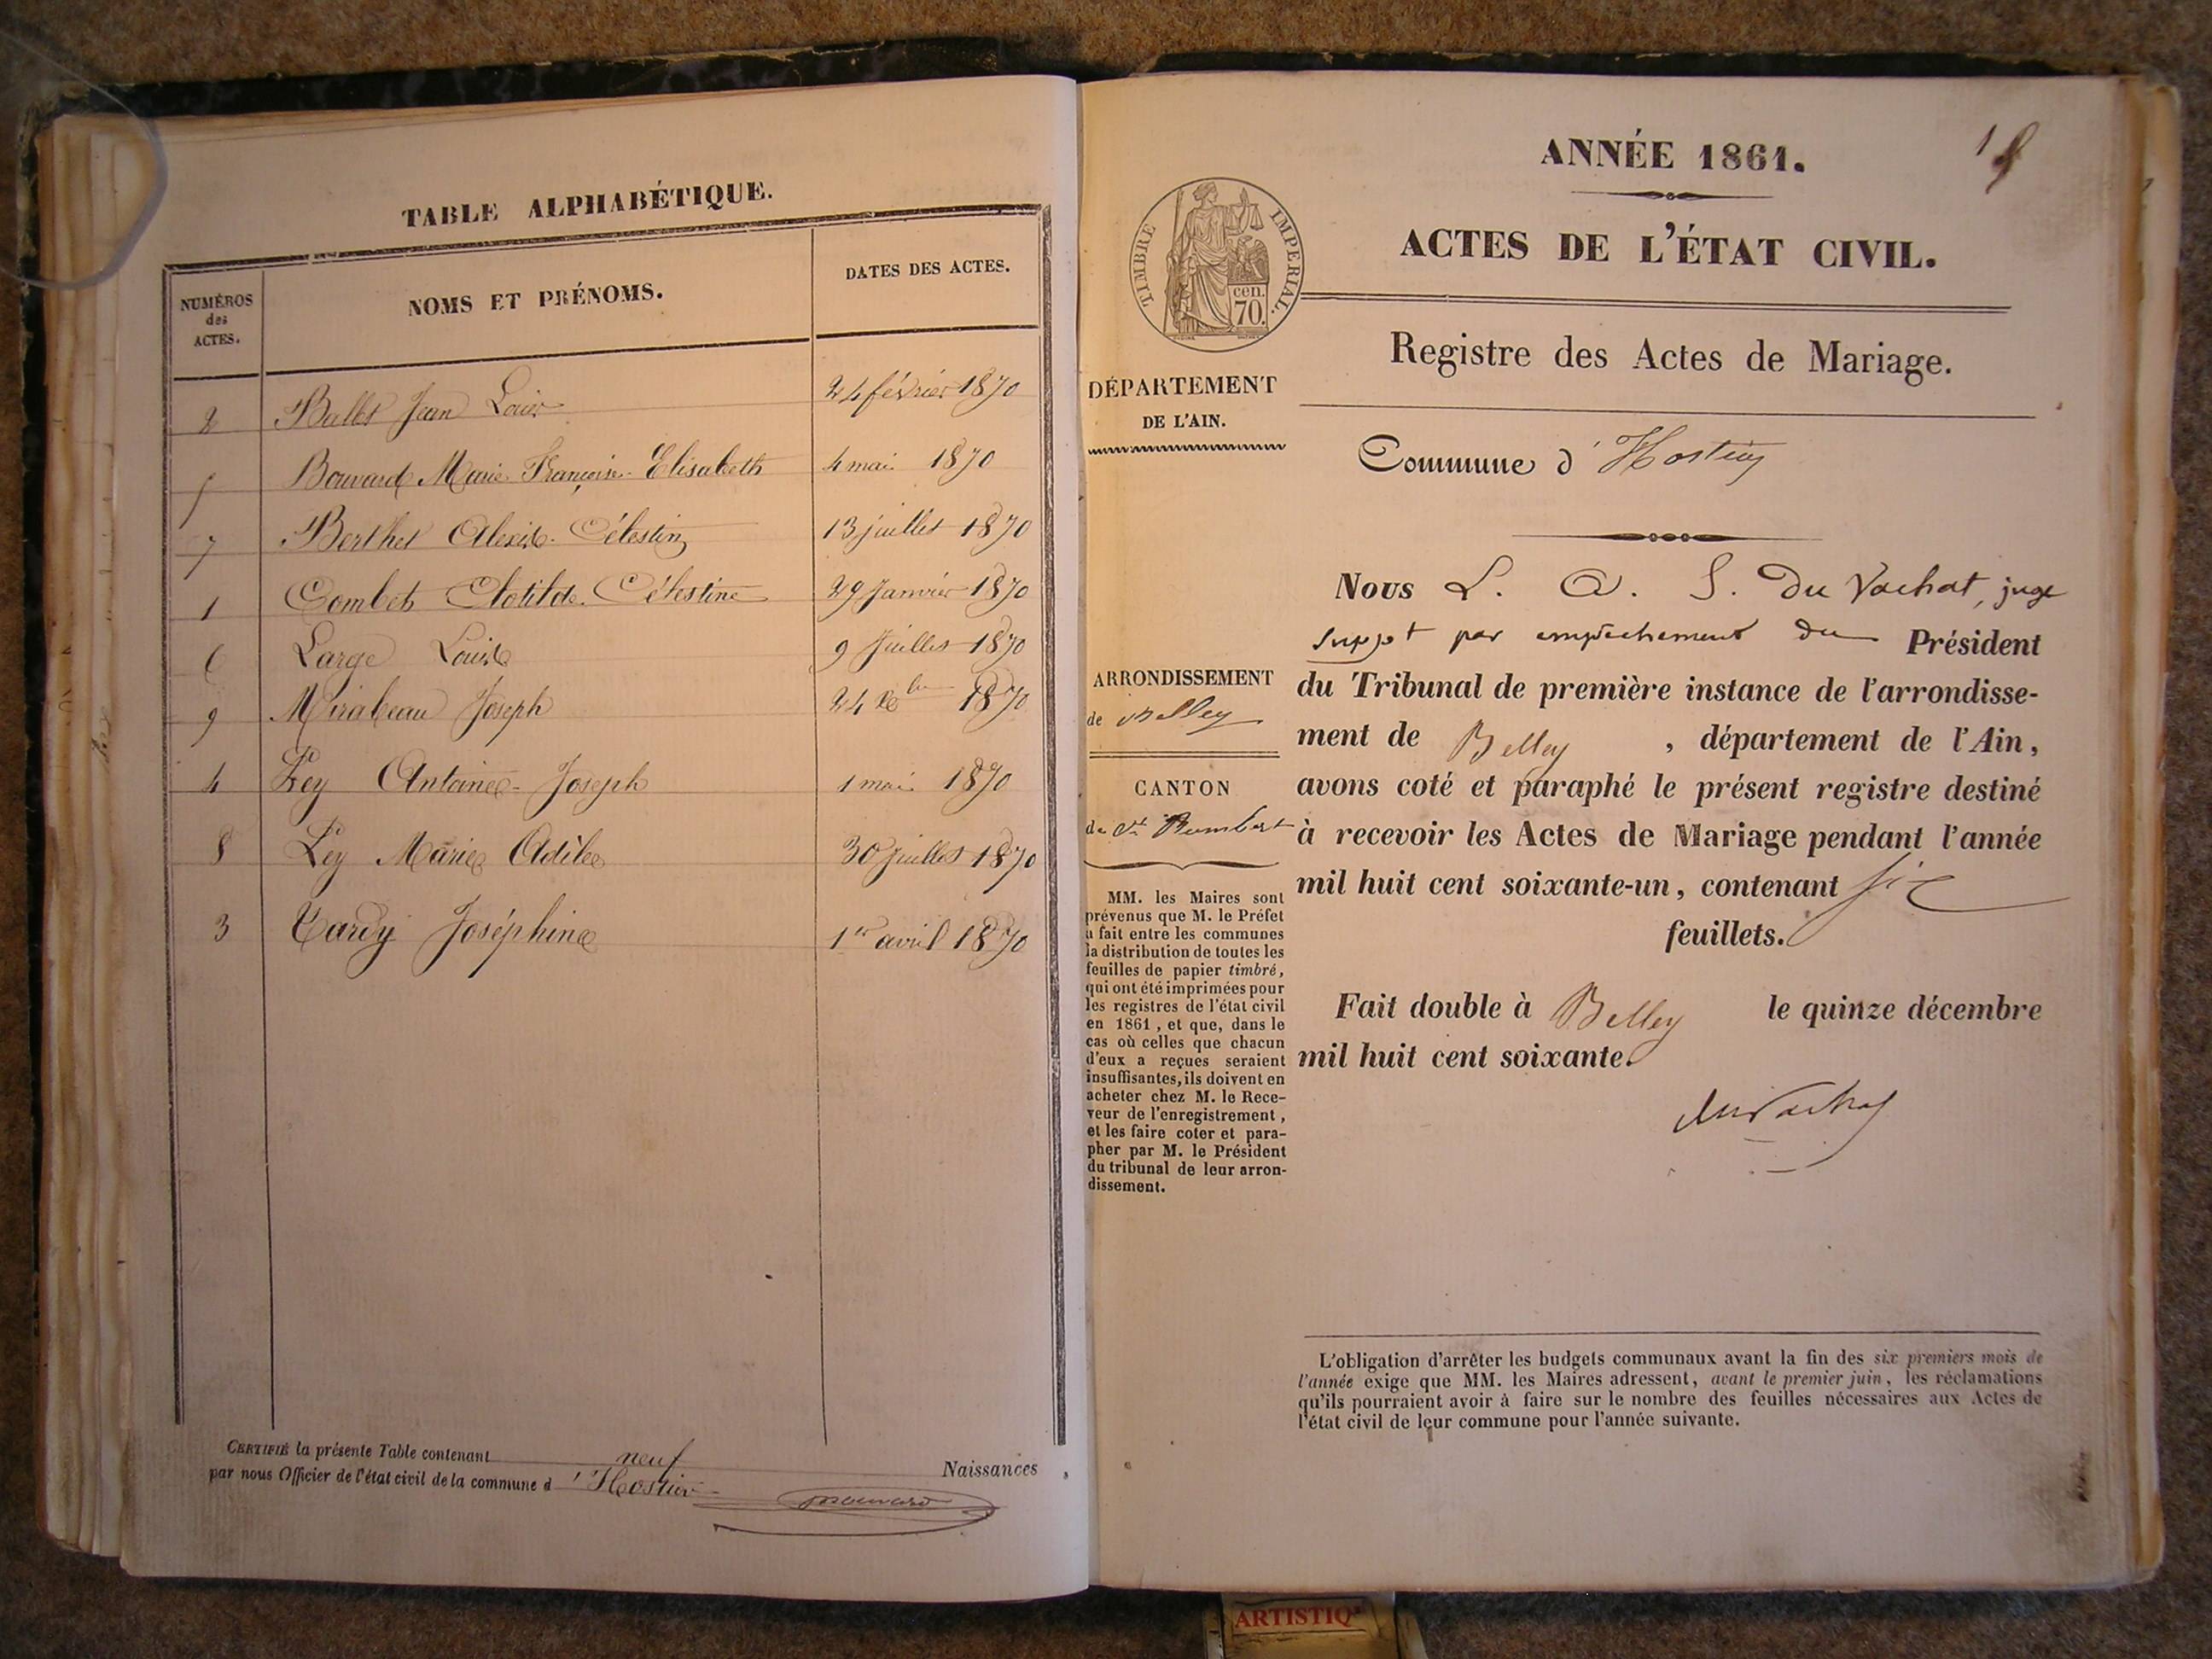 TABLE ALPHABÉTIQUE.
NUMÉROS
des
ACTES.
NOMS ET PRÉNOMS.
DATES DES ACTES.
2 Jean Louis 24 février 1870
5 Bouvard Marie Françoise Elisabeth 4 mai 1870
7 Berthet Alexis Célestin 13 juillet 1870
1 Combet Clotilde Célestine 29 Janvier 1870
6 Large Louis 9 Juillet 1870
9 Mirabeau Joseph 24 Xbre 1870
4 Rey Antoine Joseph 1 mai 1870
8 Rey Marie Adèle 30 Juillet 1870
3 Tardy Joséphine 1er avril 1870
CERTIFIÉ la présente Table contenant neuf Naissances
par nous Officier de l'état civil de la commune d'Hostias
ANNÉE 1861.
1
ACTES DE L'ÉTAT CIVIL.
TIMBRE IMPERIAL.
cen.
70.
Registre des Actes de Mariage.
DÉPARTEMENT
DE L'AIN.
Commune d'Hostias
ARRONDISSEMENT
de Belley
CANTON
de St Rambert
MM. les Maires sont
prévenus que M. le Préfet
a fait entre les communes
la distribution de toutes les
feuilles de papier timbré,
qui ont été imprimées pour
les registres de l'état civil
en 1861, et que, dans le
cas où celles que chacun
d'eux a reçues seraient
insuffisantes, ils doivent en
acheter chez M. le Rece-
veur de l'enregistrement,
et les faire coter et para-
pher par M. le Président
du tribunal de leur arron-
dissement.
Nous L. A. S. Du Vachat, juge
suppt par empêchement du Président
du Tribunal de première instance de l'arrondisse-
ment de Belley, département de l'Ain,
avons coté et paraphé le présent registre destiné
à recevoir les Actes de Mariage pendant l'année
mil huit cent soixante-un, contenant six
feuillets.
Fait double à Belley le quinze décembre
mil huit cent soixante.
DuVachat
L'obligation d'arrêter les budgets communaux avant la fin des six premiers mois de
l'année exige que MM. les Maires adressent, avant le premier juin, les réclamations
qu'ils pourraient avoir à faire sur le nombre des feuilles nécessaires aux Actes de
l'état civil de leur commune pour l'année suivante.
ARTISTIQ